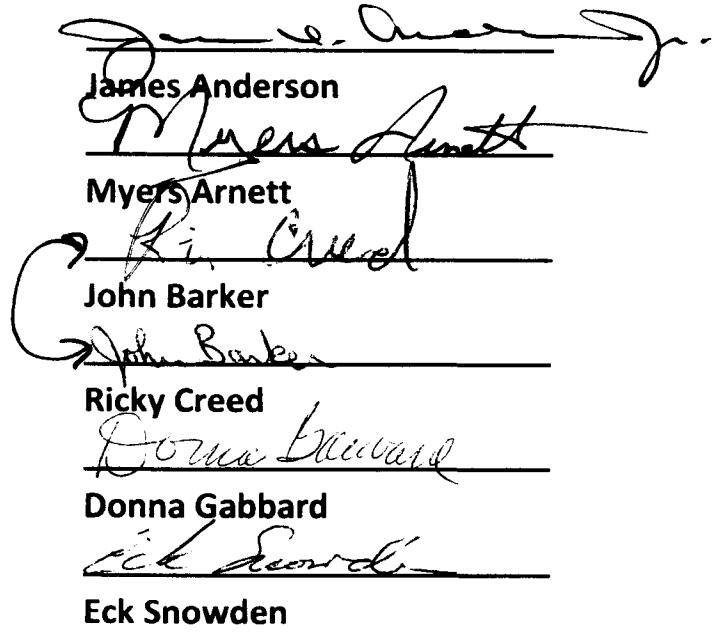 James Anderson Jr.
James Anderson
Myers Arnett
Myers Arnett
Creed
John Barker
John Barker
Ricky Creed
Donna Gabbard
Donna Gabbard
Eck Snowden
Eck Snowden